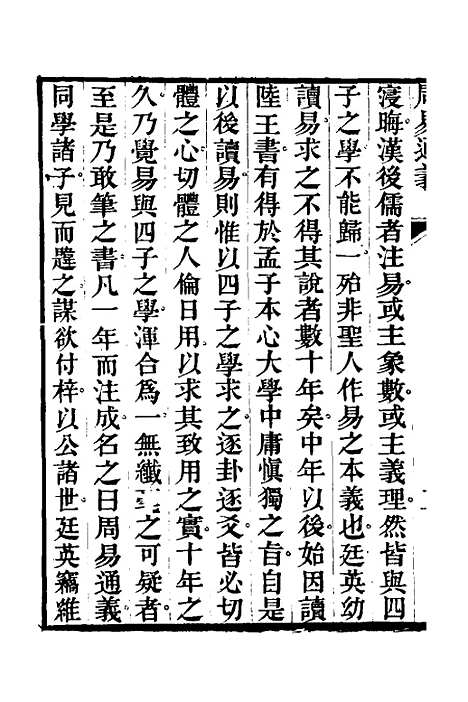 周易通義
寖晦漢後儒者注易或主象數或主義理然皆與四
子之學不能歸一殆非聖人作易之本義也廷英幼
讀易求之不得其說者數十年矣中年以後始因讀
陸王書有得於孟子本心大學中庸慎獨之旨自是
以後讀易則惟以四子之學求之逐卦逐爻皆必切
體之心切體之人倫日用以求其致用之實十年之
久乃覺易與四子之學渾合爲一無纖之可疑者
至是乃敢筆之書凡一年而注成名之曰周易通義
同學諸子見而韙之謀欲付梓以公諸世廷英竊維